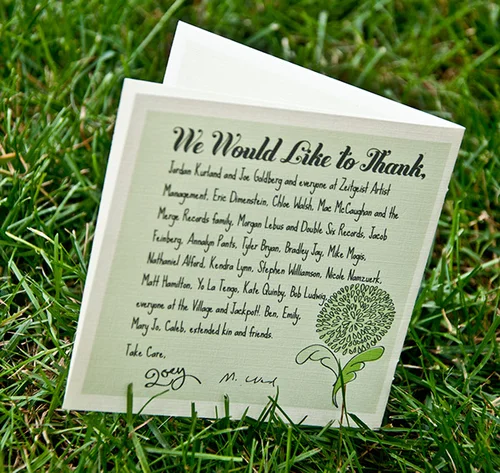 We Would Like to Thank,
Jordan Kurland and Joe Goldberg and everyone at Zeitgeist Artist
Management, Eric Dimenstein, Chloe Walsh, Mac McCaughan and the
Merge Records family, Morgan Lebus and Double Six Records, Jacob
Feinberg, Annalyn Pants, Tyler Bryan, Bradley Jay, Mike Mogis,
Nathaniel Alford, Kendra Lynn, Stephen Williamson, Nicole Namzuerk,
Matt Hamilton, Yo La Tengo, Kate Quinby, Bob Ludwig,
everyone at the Village and Jackpot!, Ben, Emily,
Mary Jo, Caleb, extended kin and friends.
Take Care,
Zoey M. Ward